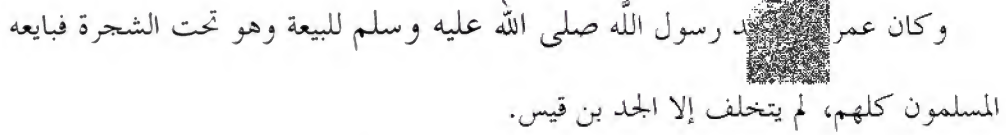 وكان عمر رسول اللَّه صلى اللَّه عليه وسلم للبيعة وهو تحت الشجرة فبايعه
المسلمون كلهم، لم يتخلف إلا الجد بن قيس.